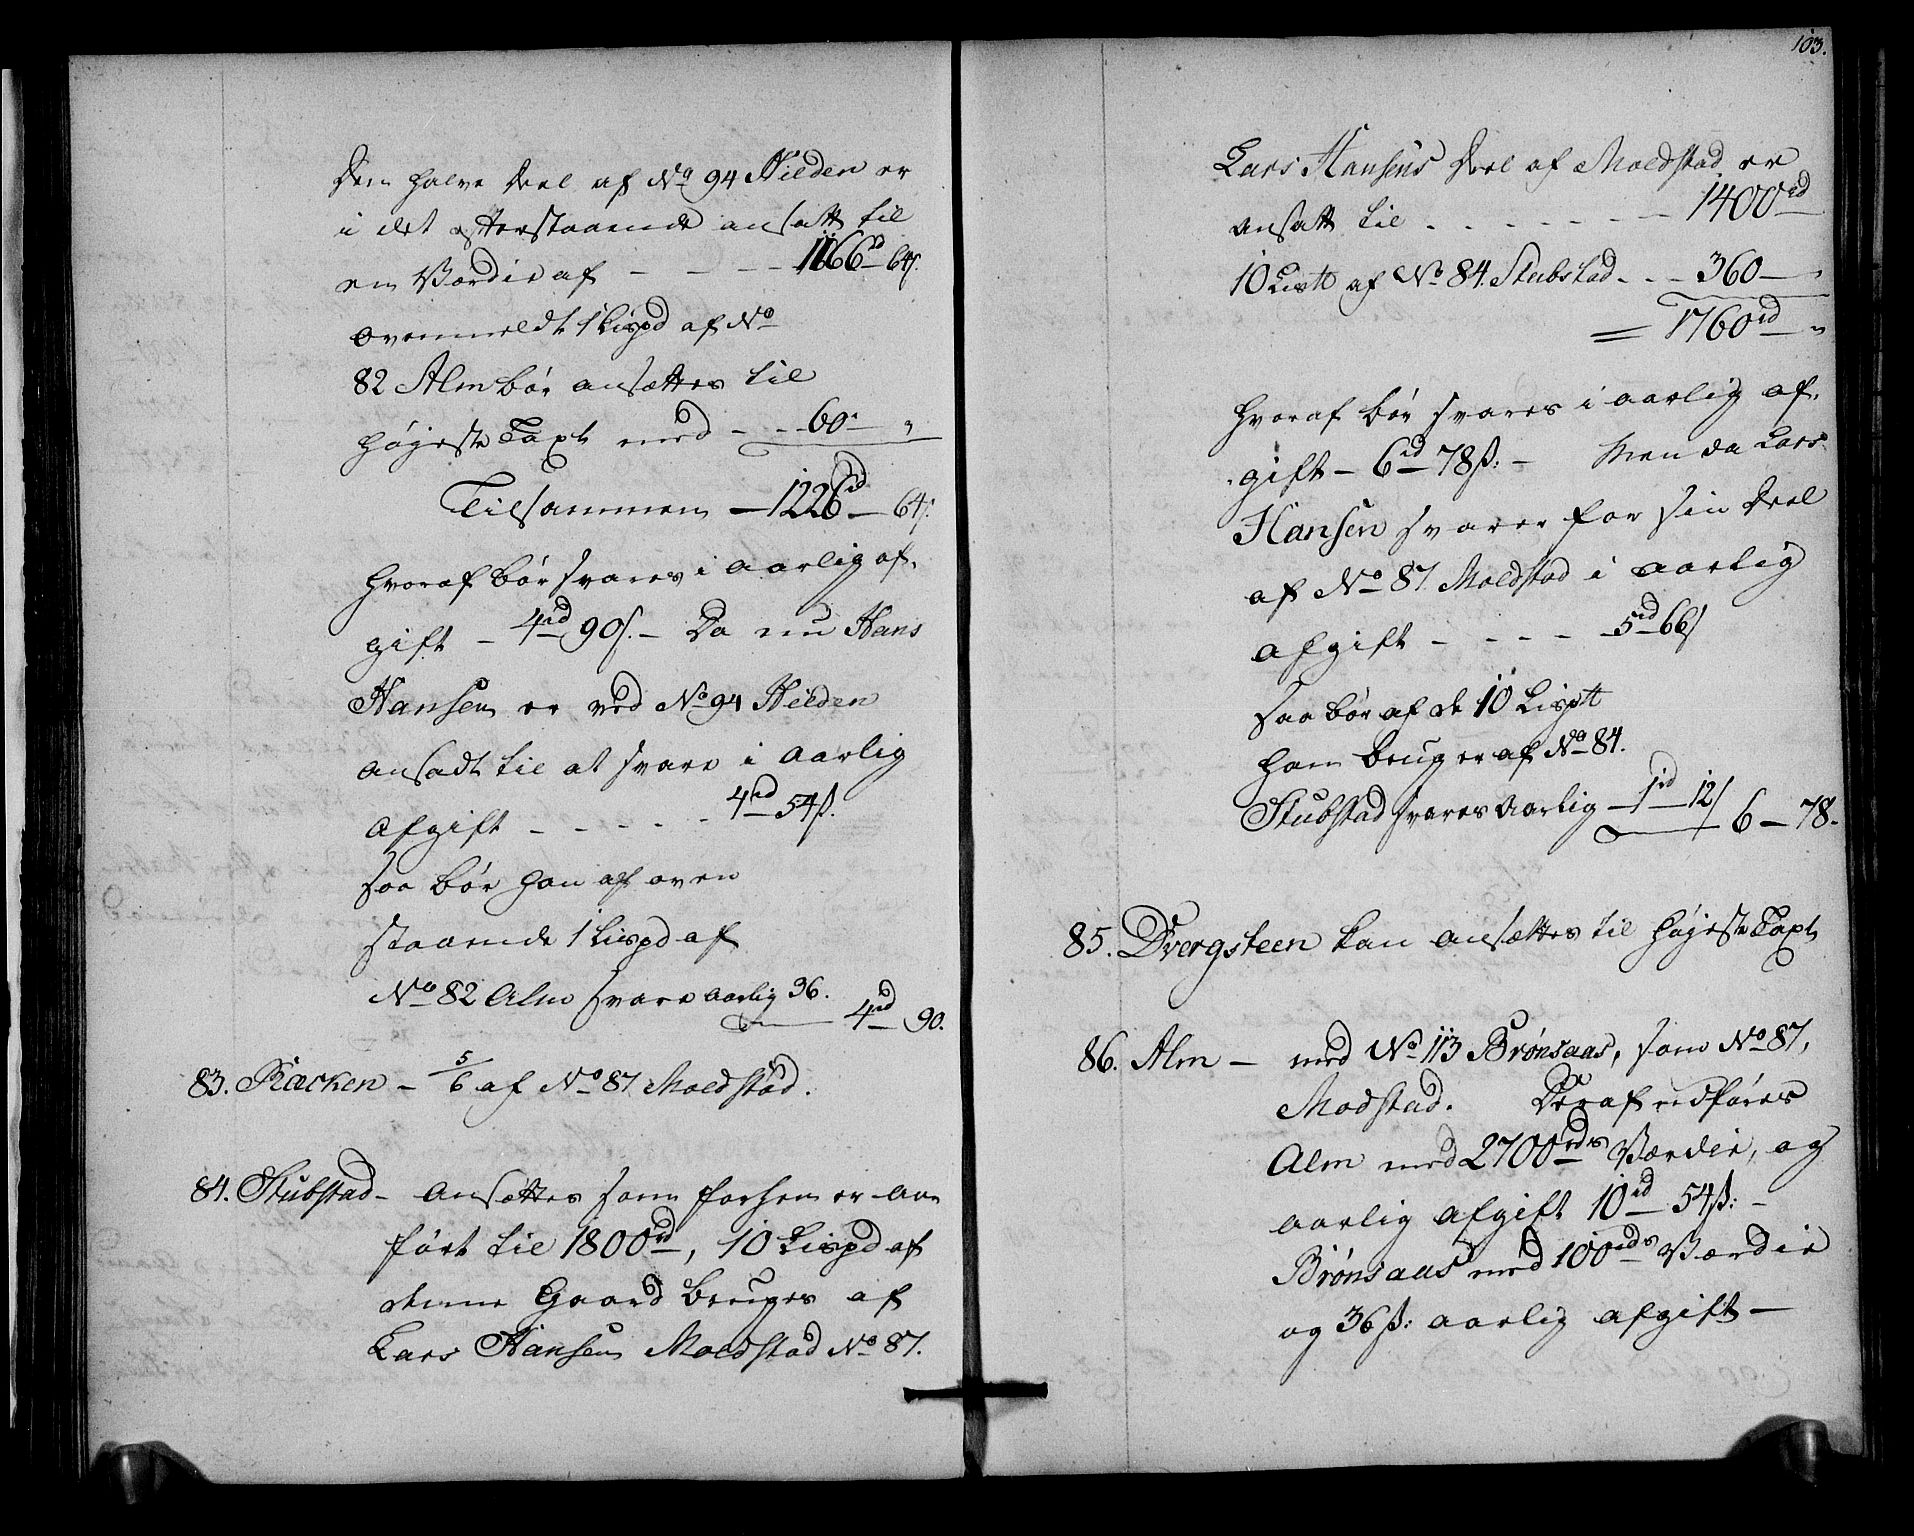 Den halve Deel af No 94 Hilden er
i det efterstaaende ansatt til
en Værdie af - - - 1166rd 64s.
ovenmeldt 1 Lispd af No
82 Alm bør ansættes til
højeste Taxt med - - 60 - "
Tilsammen - 1226rd - 64s.
hvoraf bør svares i aarlig af-
gift - 4rd 90s. - Da nu Hans
Hansen er ved No 94 Hilden
ansadt til at svare i aarlig
afgift - - - - - 4rd 54ß.
saa bør han af oven
staaende 1 Lispd af
No 82 Alm svare aarlig 36.
4rd 90.
83. Ræcken - 5/6 af No 87 Moldstad.
84. Stubstad - ansættes som forhen er an-
ført til 1800rd, 10 Lispd af
denne Gaard bruges af
Lars Hansen Moldstad No 87.
103.
Lars Hansens Deel af Moldstad er
ansatt til - - - - - - 1400rd
10 Lis℔ af No 84. Stubstad - - - 360 - "
= 1760rd - "
hvoraf bør svares i aarlig af-
gift - 6rd 78ß: - Men da Lars
Hansen svarer for sin Deel
af No 87 Moldstad i aarlig
afgift - - - - 5rd 66s
saa bør af de 10 Lisp℔
han bruger af No 84.
Stubstad svares aarlig - 1rd 12s 6 - 78.
85. Dvergsteen kan ansættes til højeste Taxt
86. Alm - med No 113 Brønsaas, som No 87,
Modstad. Deraf udføres
Alm med 2700rds Værdie, og
aarlig afgift 10rd 54ß: -
Brønsaas med 100rds Værdie
og 36ß: aarlig afgift -